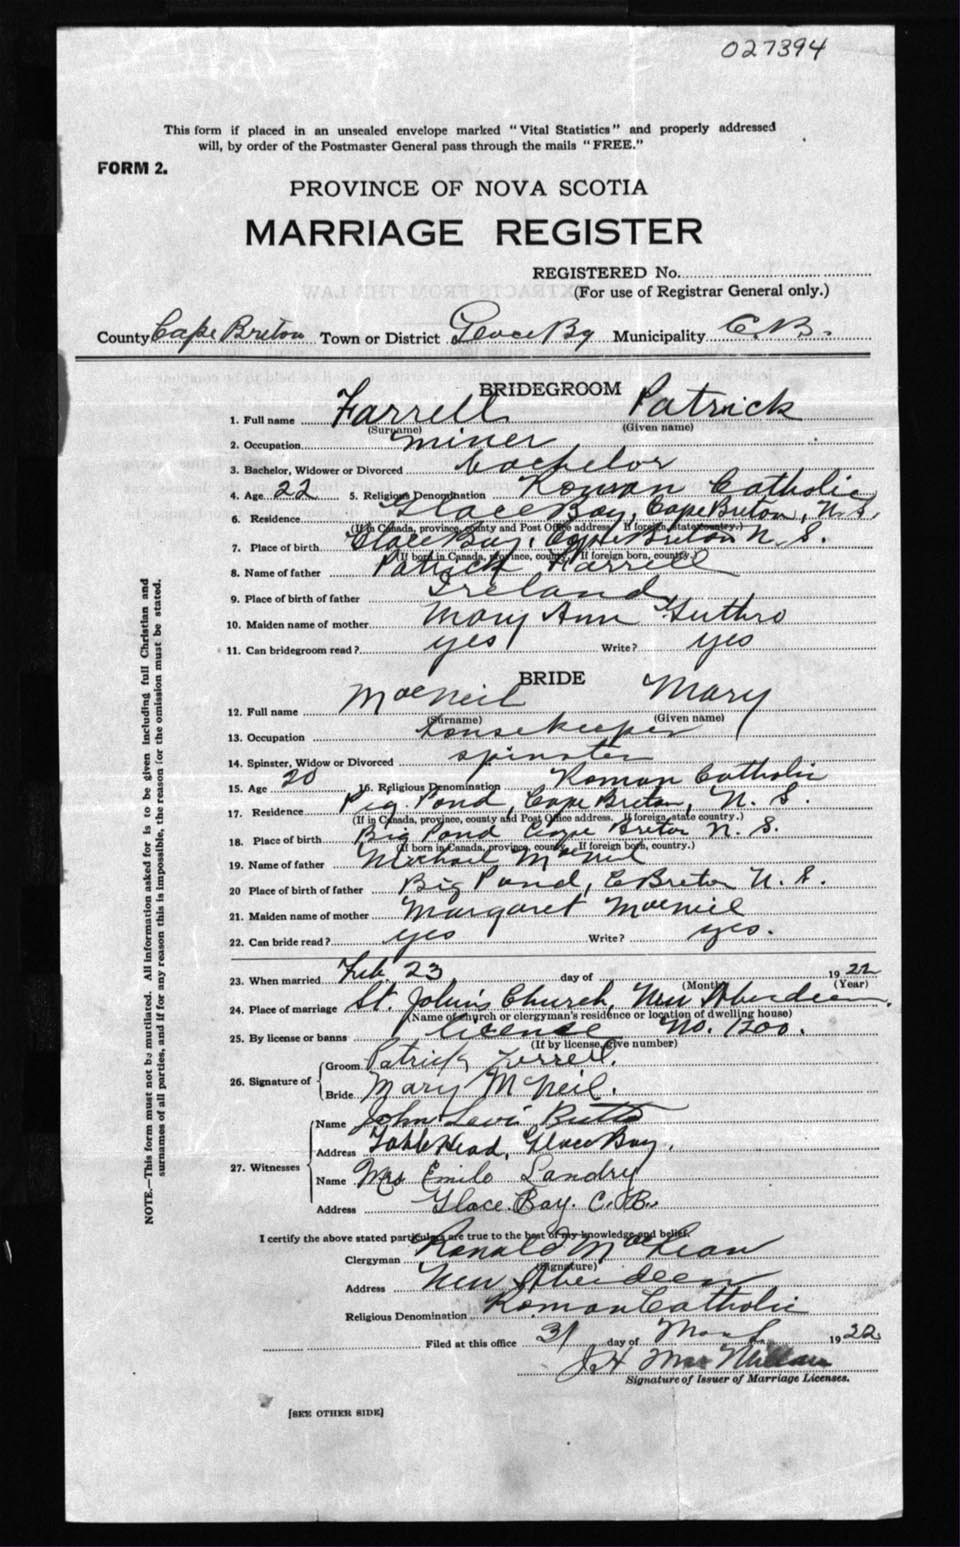 027394
This form if placed in an unsealed envelope marked "Vital Statistics" and properly addressed
will, by order of the Postmaster General pass through the mails "FREE."
FORM 2.
PROVINCE OF NOVA SCOTIA
MARRIAGE REGISTER
REGISTERED No.
(For use of Registrar General only.)
County Cape Breton Town or District Glace By Municipality C.B.
BRIDEGROOM
1. Full name Farrell Patrick
(Surname) (Given name)
2. Occupation miner
3. Bachelor, Widower or Divorced bachelor
4. Age 22 5. Religious Denomination Roman Catholic
6. Residence Glace Bay, Cape Breton, N.S.
(If in Canada, province, county and Post Office address. If foreign, state country.)
7. Place of birth Glace Bay, Cape Breton N.S.
(If born in Canada, province, county. If foreign born, country.)
8. Name of father Patrick Farrell
9. Place of birth of father Ireland
10. Maiden name of mother Mary Ann Guthro
11. Can bridegroom read? yes Write? yes
BRIDE
12. Full name MacNeil Mary
(Surname) (Given name)
13. Occupation housekeeper
14. Spinster, Widow or Divorced spinster
15. Age 20 16. Religious Denomination Roman Catholic
17. Residence Big Pond, Cape Breton, N.S.
(If in Canada, province, county and Post Office address. If foreign, state country.)
18. Place of birth Big Pond Cape Breton N.S.
(If born in Canada, province, county. If foreign born, country.)
19. Name of father Michael MacNeil
20 Place of birth of father Big Pond, C Breton N.S.
21. Maiden name of mother Margaret MacNeil
22. Can bride read? yes Write? yes.
23. When married Feb. 23 day of 1922
(Month) (Year)
24. Place of marriage St. John's Church, New Aberdeen.
(Name of church or clergyman's residence or location of dwelling house)
25. By license or banns license No. 1200.
(If by license, give number)
26. Signature of
Groom Patrick Ferrell.
Bride Mary McNeil.
27. Witnesses
Name John Levi Butts
Address Table Head, Glace Bay.
Name Mrs Emile Landry
Address Glace Bay. C.B.
I certify the above stated particulars are true to the best of my knowledge and belief.
Clergyman Ronald MacLean
(Signature)
Address New Aberdeen
Religious Denomination Roman Catholic
Filed at this office 31 day of 1922
Signature of Issuer of Marriage Licenses.
[SEE OTHER SIDE]
NOTE.—This form must not be mutilated. All information asked for is to be given including full Christian and
surnames of all parties, and if for any reason this is impossible, the reason for the omission must be stated.